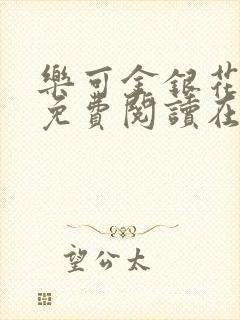 樂可金銀花
免費閱讀在
望公太